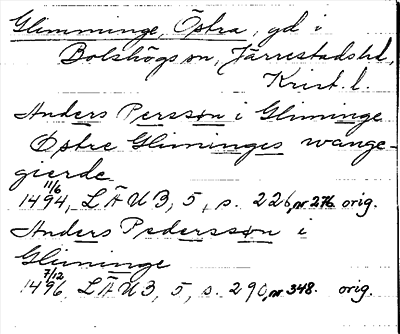 Glimminge, Östra, gd i
Bolshögs sn, Järrestads hd,
Krist. l.
Anders Persson i Gliminge
Østre Gliminges wange-
gierde
11/6
1494, LÄUB, 5, s. 226, nr 276 orig.
Anders Pedersson i
Gliminge
7/12
1496, LÄUB, 5, s. 290, nr 348. orig.